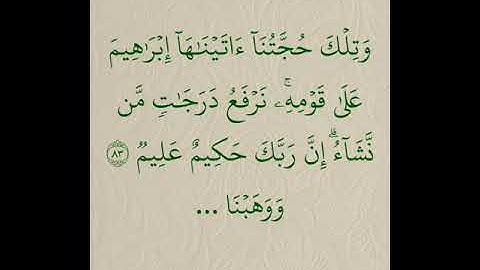 وَتِلۡكَ حُجَّتُنَآ ءَاتَيۡنَٰهَآ إِبۡرَٰهِيمَ
عَلَىٰ قَوۡمِهِۦۚ نَرۡفَعُ دَرَجَٰتٖ مَّن
نَّشَآءُۗ إِنَّ رَبَّكَ حَكِيمٌ عَلِيمٞ ٨٣
وَوَهَبۡنَا ...